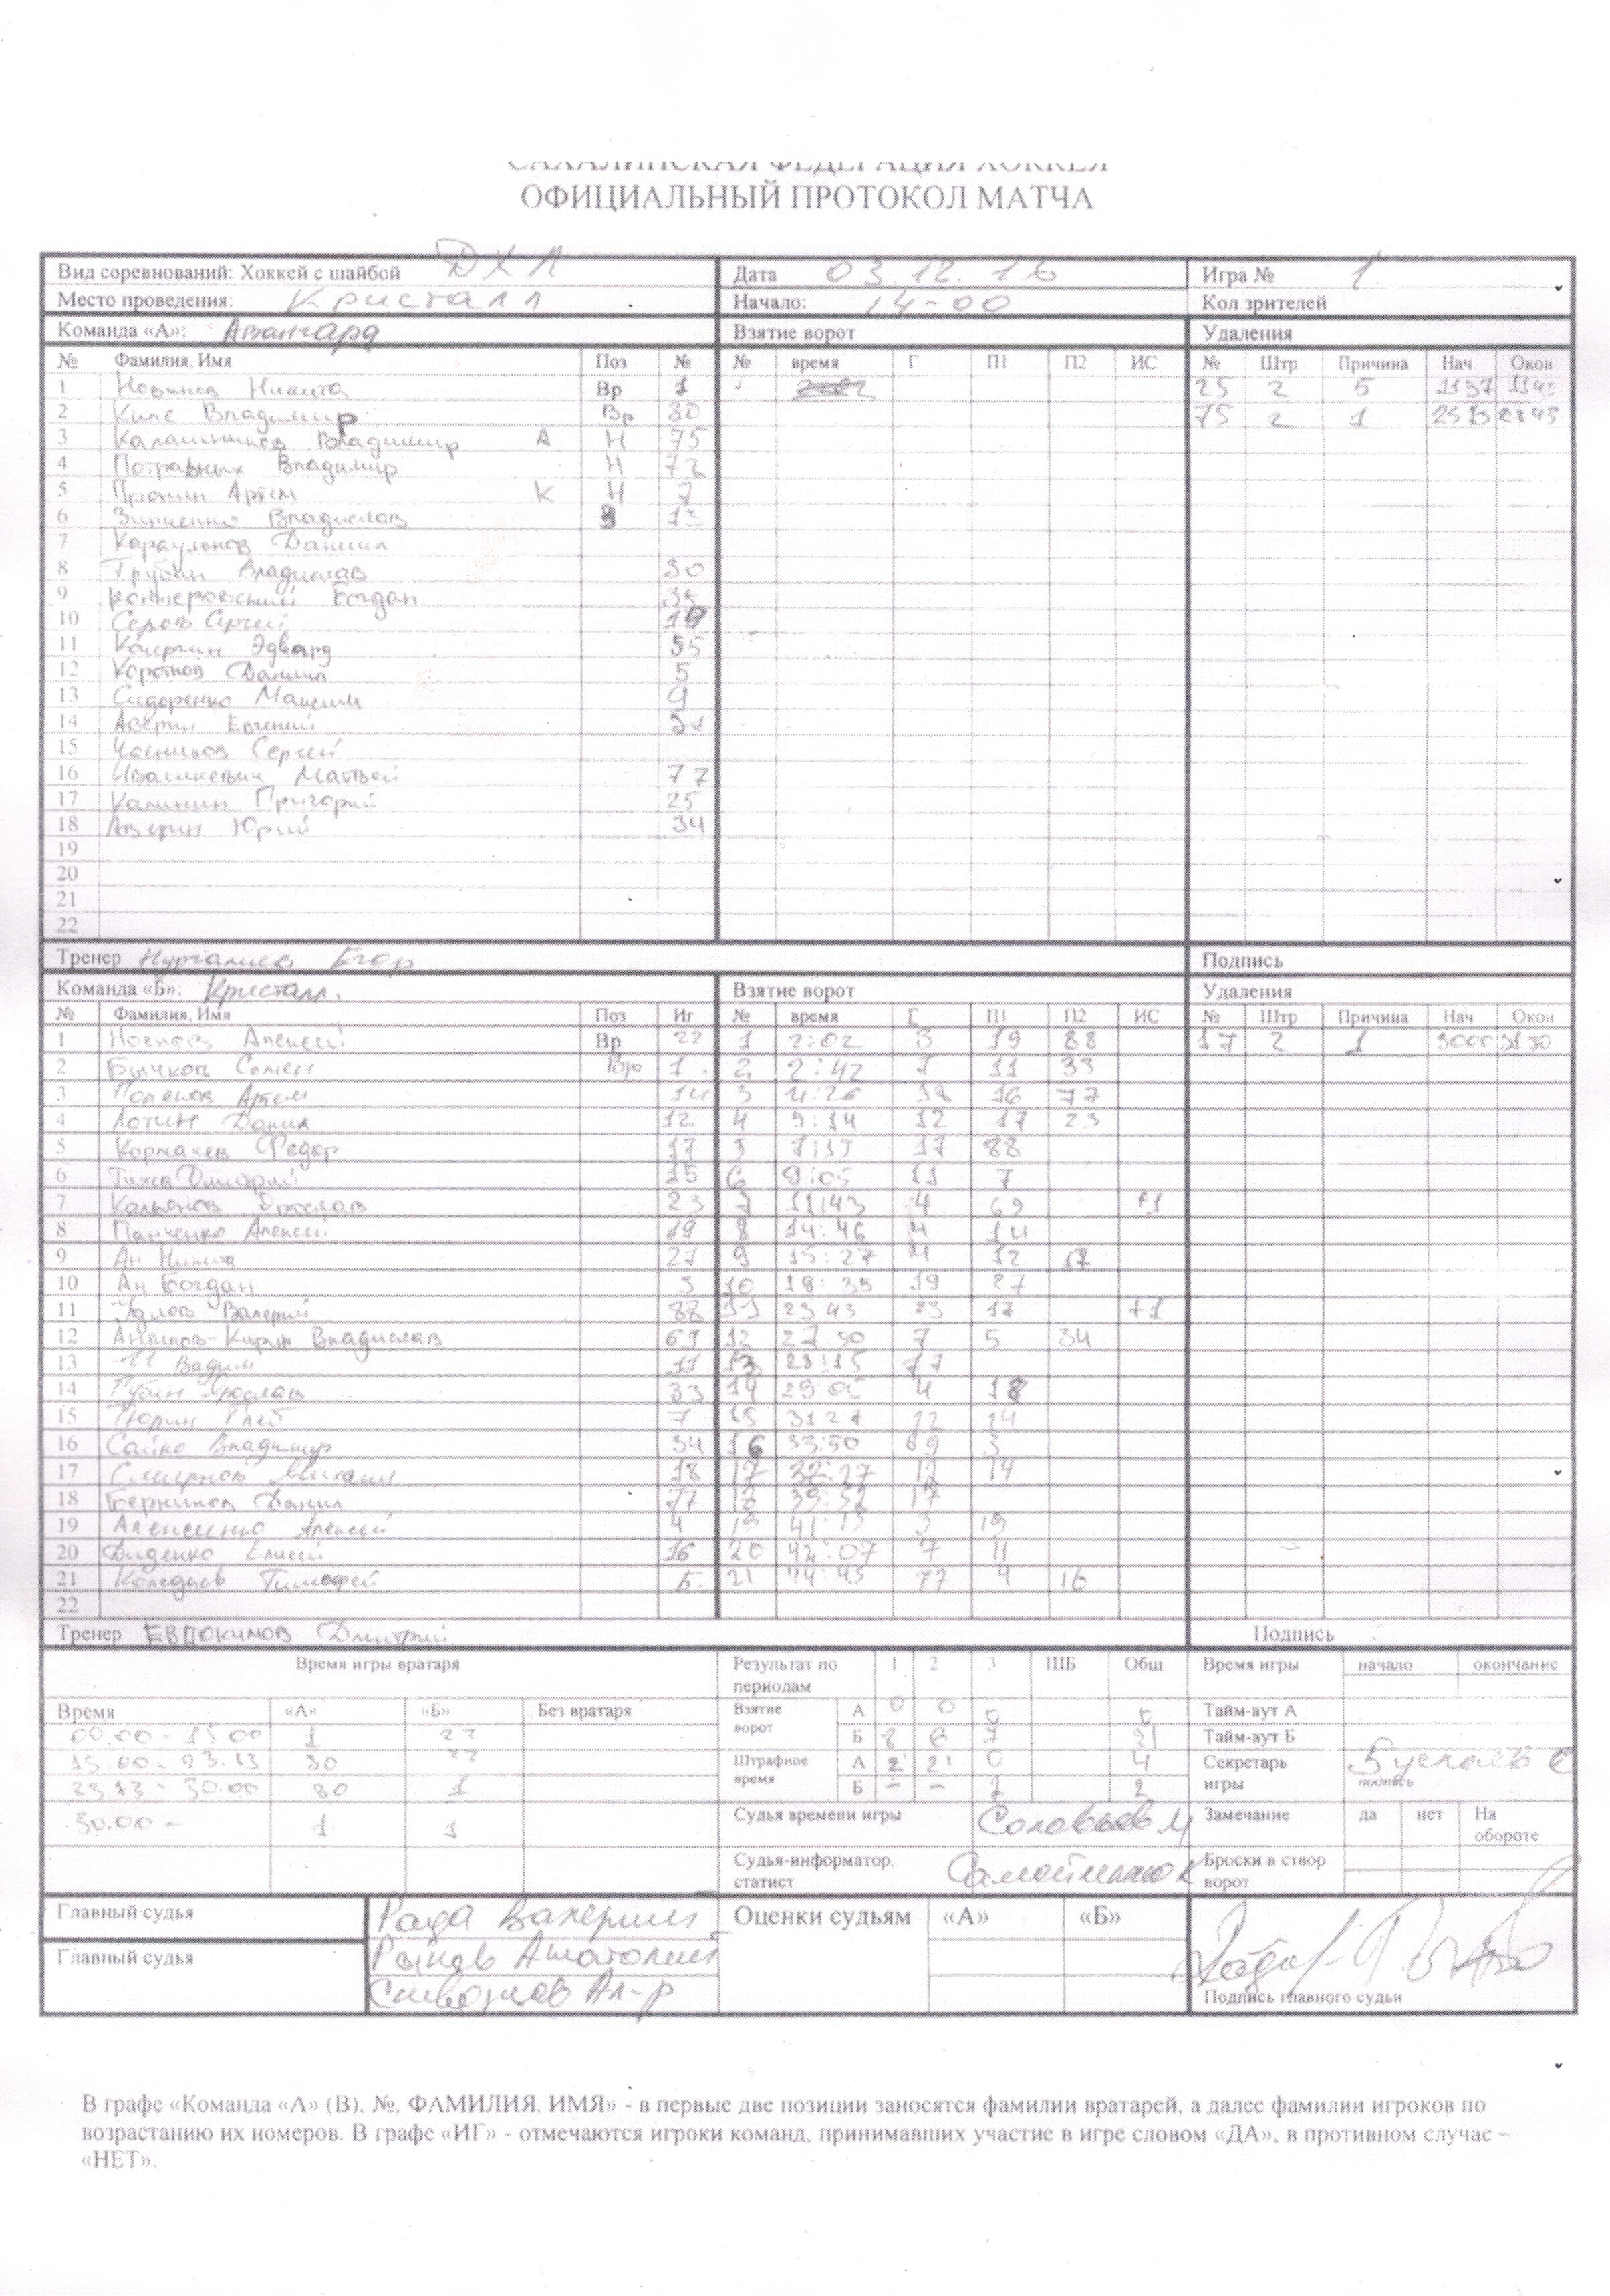 САХАЛИНСКАЯ ФЕДЕРАЦИЯ ХОККЕЯ
ОФИЦИАЛЬНЫЙ ПРОТОКОЛ МАТЧА
Вид соревнований: Хоккей с шайбой ДХЛ Дата 03 12. 16 Игра № 1
Место проведения: Кристалл Начало: 14-00 Кол зрителей
Команда «А»: Авангард Взятие ворот Удаления
№ Фамилия, Имя Поз № № время Г П1 П2 ИС № Штр Причина Нач Окон
1 Никита Вр 1 25 2 5 1137
2 Владимир Вр 30 75 2 1
3 Владимир А Н 75
4 Владимир Н 72
5 Пронин Артем К Н 7
6 Зинченко Владислав З 13
7 Караульнов Даниил
8 Трубин Владислав 30
9 Богдан
10 Серов 19
11 Эдвард 55
12 Коротков Данила 5
13 Сидоренко Максим 9
14 Аверин Евгений
15 Сергей
16 Ивашкевич Матвей 77
17 Калинин Григорий 25
18 Аверин Юрий 34
19
20
21
22
Тренер Нургалиев Егор Подпись
Команда «Б»: Кристалл. Взятие ворот Удаления
№ Фамилия, Имя Поз Иг № время Г П1 П2 ИС № Штр Причина Нач Окон
1 Носков Алексей Вр 22 1 2:02 3 19 88 17 2 1 3000 3130
2 Бычков Семен Вр 1 2 2:42 7 11 33
3 Артем 14 3 4:26 16 77
4 Лотин Данил 12 4 5:14 12 17 23
5 Кормачев Федор 17 5 17 88
6 Дмитрий 15 6 9:05 11 7
7 Кальянов Ярослав 23 7 11:43 4 69 +1
8 Панченко Алексей 19 8 14:46 4 14
9 Ан Никита 27 9 15:27 4 12 17
10 Ан Богдан 3 10 18:39 19 27
11 Валерий 88 11 23 43 23 17 +1
12 Владислав 69 12 27 50 7 5 34
13 Вадим 11 13 28:15 77
14 Ярослав 33 14 29:05 4 18
15 Тюрин Глеб 7 15 3127 12 14
16 Сайко Владимир 34 16 33:50 69 3
17 Смирнов Михаил 18 17 12 14
18 Данил 77 18 17
19 Алексеенко Алексей 4 19 41:13 3 19
20 Диденко Елисей 16 20 42:07 7 11
21 Коледаев Тимофей 5 21 44:45 77 4 16
22
Тренер ЕВДОКИМОВ Дмитрий Подпись
Время игры вратаря Результат по периодам 1 2 3 ШБ Общ Время игры начало окончание
Время «А» «Б» Без вратаря Взятие ворот А 0 0 0 Тайм-аут А
00.00 - 15 00 1 22 Б 8 6 7 21 Тайм-аут Б
15.00 - 23.13 30 22 Штрафное время А 2 2 0 4 Секретарь игры
23 13 - 30.00 30 1 Б - - 2 2 подпись
30.00 - 1 1 Судья времени игры Соловьев Замечание да нет На обороте
Судья-информатор, статист Броски в створ ворот
Главный судья Рада Валерий Оценки судьям «А» «Б»
Главный судья Рыков Анатолий
Ал-р Подпись главного судьи
В графе «Команда «А» (В), №, ФАМИЛИЯ, ИМЯ» - в первые две позиции заносятся фамилии вратарей, а далее фамилии игроков по
возрастанию их номеров. В графе «ИГ» - отмечаются игроки команд, принимавших участие в игре словом «ДА», в противном случае –
«НЕТ».